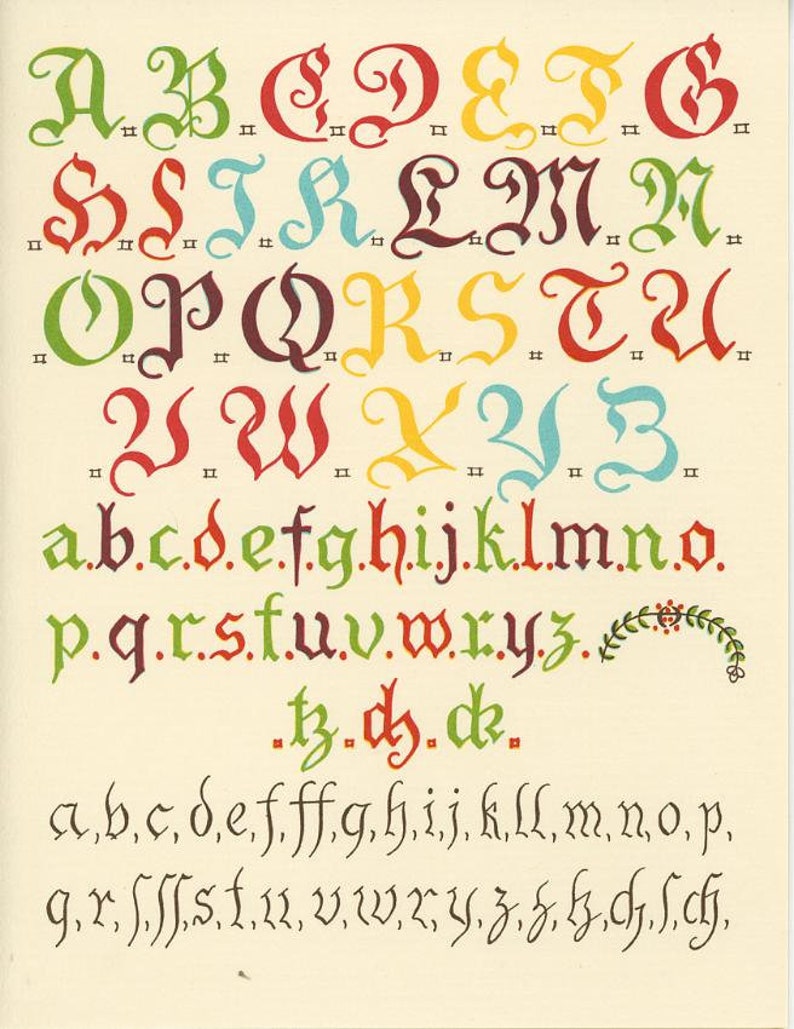 A B C D E F G
H I J K L M N
O P Q R S T U
V W X Y Z
a.b.c.d.e.f.g.h.i.j.k.l.m.n.o.
p.q.r.s.t.u.v.w.x.y.z.
.tz.ch.ck.
a,b,c,d,e,f,ff,g,h,i,j,k,ll,m,n,o,p,
q,r,ſ,ſſ,s,t,u,v,w,x,y,z,z,tz,ch,ſch,